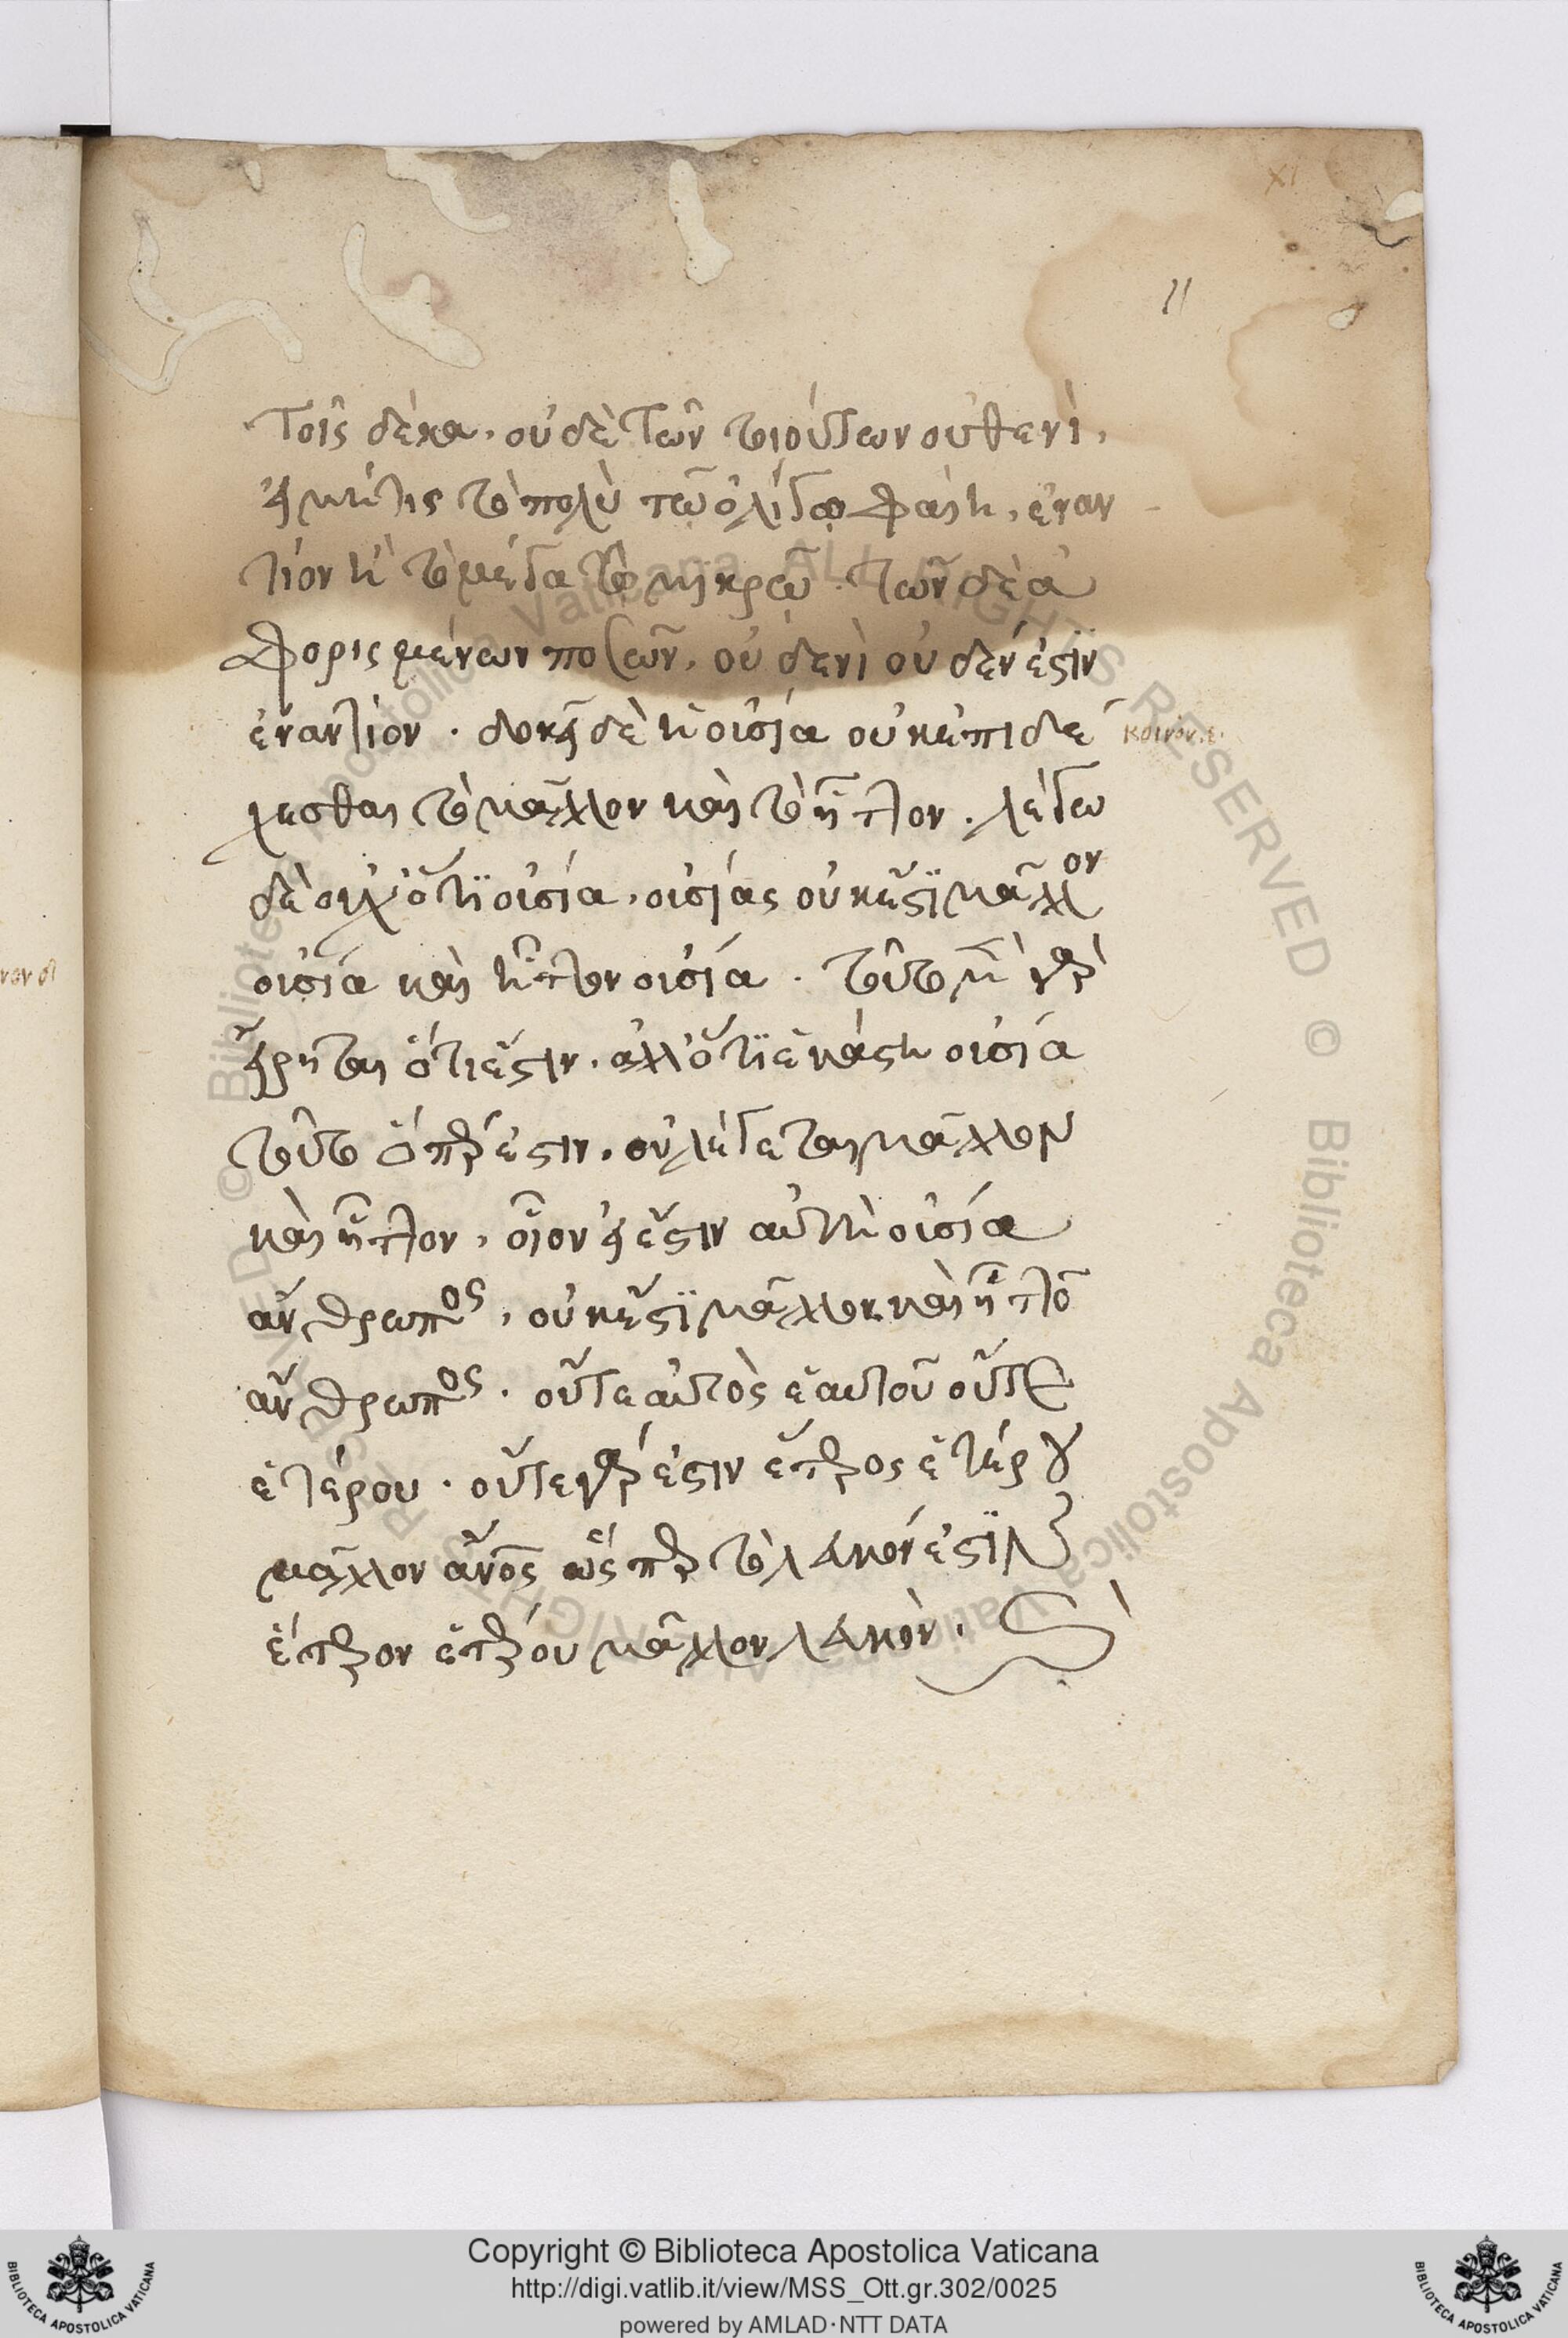 XI
11
τοῖς δέκα· οὐδὲ τῶν τοιούτων οὐθενὶ,
εἰ μήτις τὸ πολὺ τῶ ὀλίγω φαίη, ἐναν
τίον ἢ τὸ μέγα τῶ μικρῶ· τῶν δὲ ἀ
φορισμένων ποσῶν, οὐδενὶ οὐδέν ἐστιν
ἐναντίον · δοκεῖ δὲ ἡ οὐσία οὐκ ἐπιδέ
χεσθαι τὸ μᾶλλον καὶ τὸ ἧττον · λέγω
δὲ οὐχ ὅτι ἡ οὐσία, οὐσίας οὐκ ἔστι μᾶλλον
οὐσία καὶ ἧττον οὐσία · τοῦτο μὲν γὰρ
εἴρηται ὅτι ἔστιν · ἀλλ' ὅτι ἑκάστη οὐσία
τοῦθ' ὅπερ ἐστιν, οὐ λέγεται μᾶλλον
καὶ ἧττον, οἷον εἰ ἔστιν αὐτὴ οὐσία
ἄνθρωπος, οὐκ ἔστι μᾶλλον καὶ ἧττον
ἄνθρωπος · οὔτε αὐτὸς ἑαυτοῦ οὔτε
ἑτέρου · οὔτε γάρ ἐστιν ἕτερος ἑτέρου
μᾶλλον ἄνος ὥσπερ τὸ λευκόν ἐστιν
ἕτερον ἑτέρου μᾶλλον λευκὸν ·
κοινόν.ε.
Copyright © Biblioteca Apostolica Vaticana
http://digi.vatlib.it/view/MSS_Ott.gr.302/0025
powered by AMLAD·NTT DATA